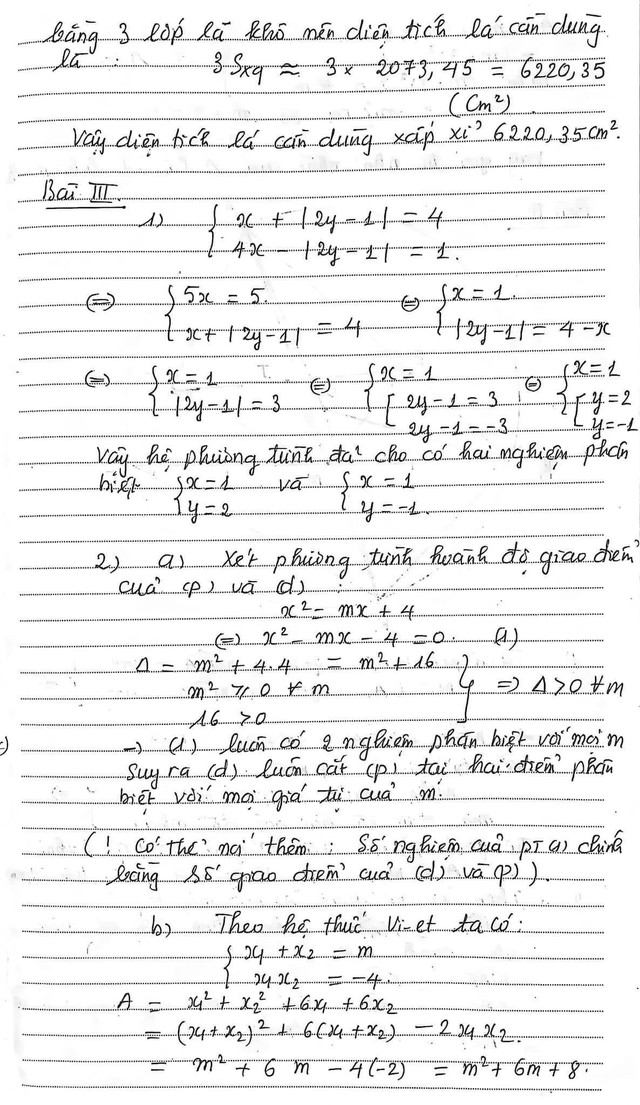 bằng 3 lớp lá khô nên diện tích lá cần dùng
là : 3 Sxq ≈ 3 x 2073,45 = 6220,35
(Cm²)
Vậy diện tích lá cần dùng xấp xỉ 6220,35cm².
Bài III.
1) { x + |2y - 1| = 4
4x - |2y - 1| = 1.
(=) { 5x = 5. (=) { x = 1.
x + |2y-1| = 4 |2y-1| = 4 - x
(=) { x = 1 (=) { x = 1 (=) { x = 1
|2y-1| = 3 [ 2y - 1 = 3 [ y = 2
2y - 1 = -3 y = -1
Vậy hệ phương trình đã cho có hai nghiệm phân
biệt { x = 1 và { x = 1
y = 2 y = -1.
2) a) Xét phương trình hoành độ giao điểm
của (p) và (d) :
x² = mx + 4
(=) x² - mx - 4 = 0. (1)
Δ = m² + 4.4 = m² + 16
m² ≥ 0 ∀ m } => Δ > 0 ∀ m
16 > 0
→ (1) luôn có 2 nghiệm phân biệt với mọi m
Suy ra (d) luôn cắt (p) tại hai điểm phân
biệt với mọi giá trị của m.
(! Có thể nói thêm : Số nghiệm của pT (1) chính
bằng số giao điểm của (d) và (p) ).
b) Theo hệ thức Vi-et ta có :
{ x1 + x2 = m
x1 x2 = -4.
A = x1² + x2² + 6x1 + 6x2
= (x1 + x2)² + 6(x1 + x2) - 2 x1 x2.
= m² + 6 m - 4(-2) = m² + 6m + 8.